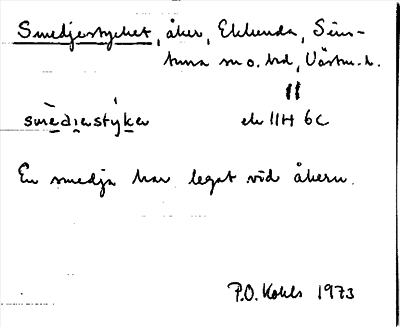 Smedjestycket, åker, Eklunda, Sims-
tuna sn o. hd, Västm. l.
ek 11H 6c
En smedja har legat vid åkern.
P.O. Kohls 1973